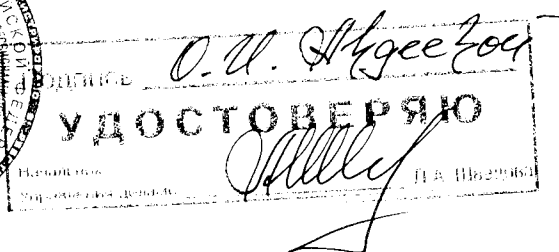 ПОДПИСЬ О.И. Авдеевой
УДОСТОВЕРЯЮ
Начальник
Управления делами Л.А. Швецова